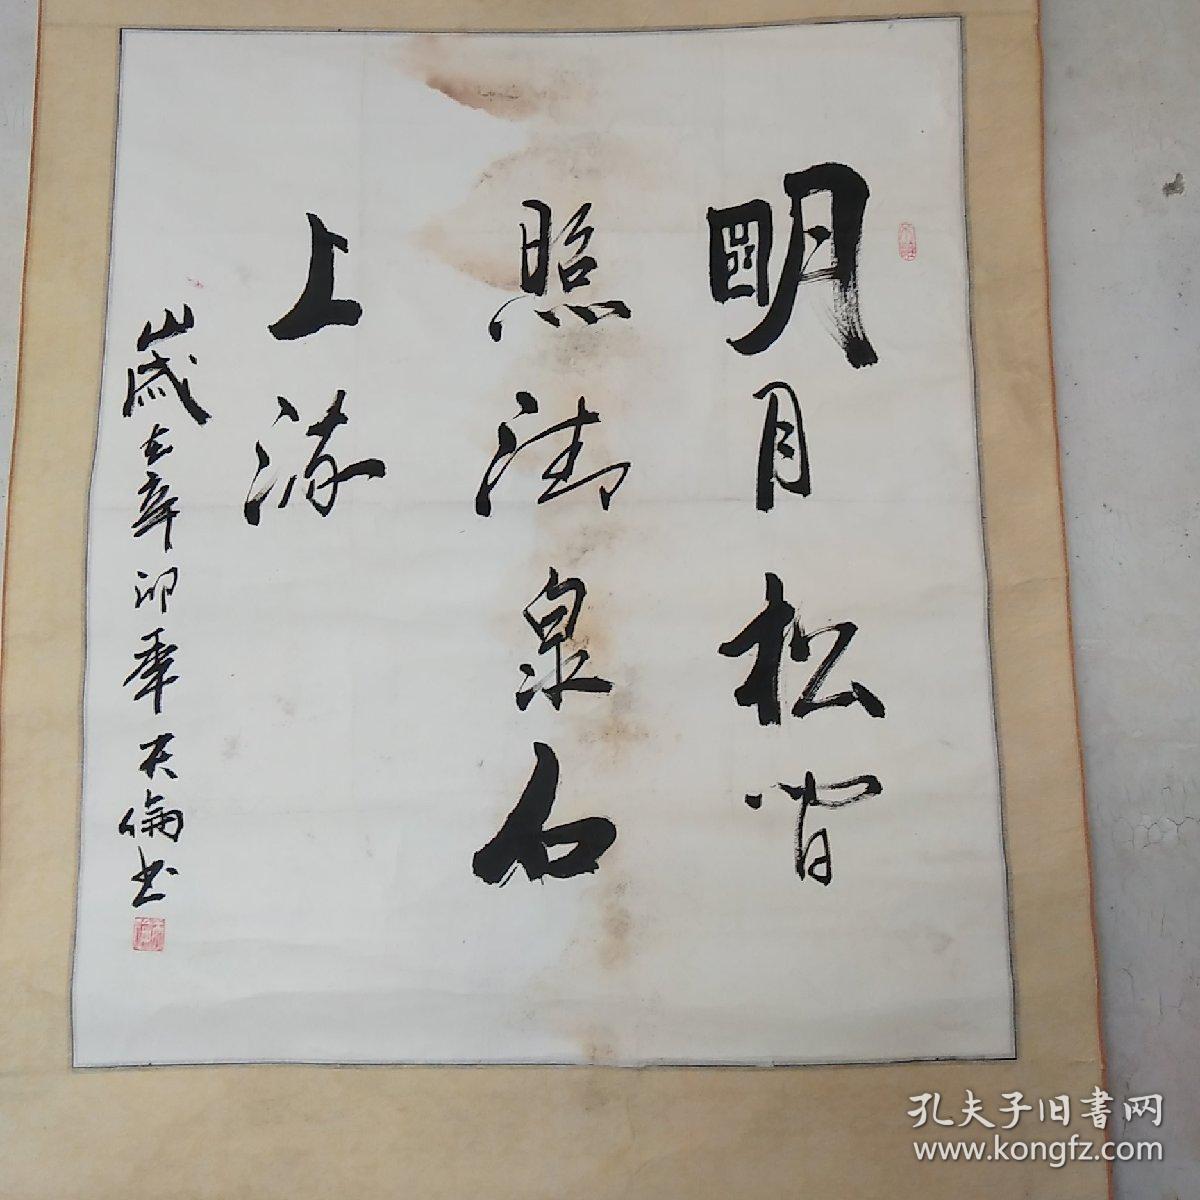 明月松間
照清泉石
上流
歲在辛卯年天倫书
孔夫子旧書网
www.kongfz.com